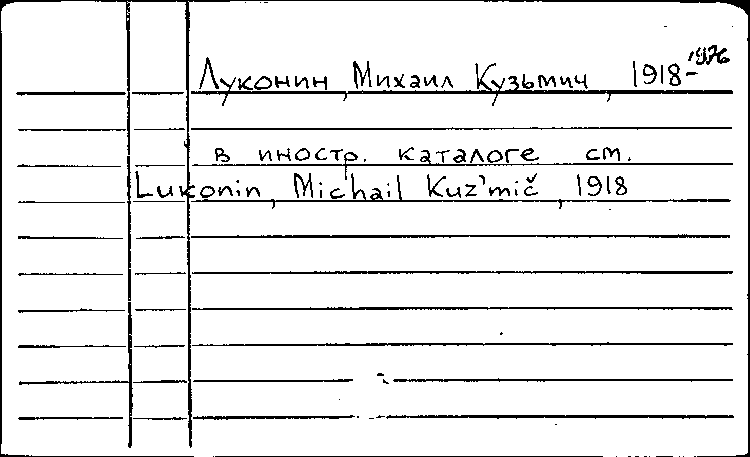 Луконин, Михаил Кузьмич, 1918-1976
в иностр. каталоге см.
Lukonin, Michail Kuz'mič, 1918